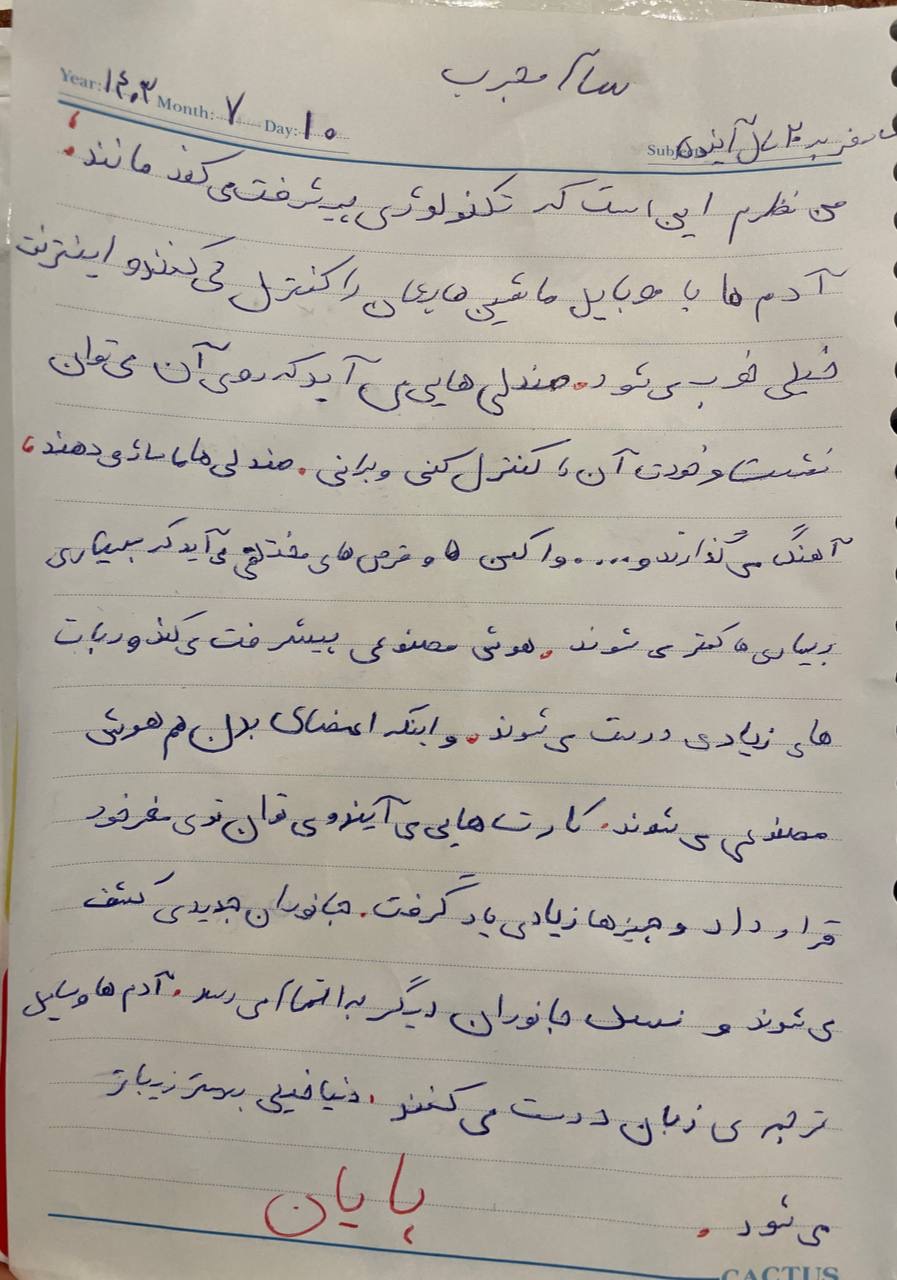 سآرا مجرب
Year: ۱۴۰۳ Month: ۷ Day: ۱۰
Subject: سفر به ۲۰ سال آینده
من نظرم این است که تکنولوژی پیشرفت می کند مانند:
آدم ها با موبایل ماشین هایمان را کنترل می کنند و اینترنت
خیلی خوب می شود. صندلی هایی می آید که روی آن می توان
نشست و خودت آن را کنترل کنی و برانی. صندلی ها ماساژ می دهند،
آهنگ می گذارند و.... واکسن ها و قرص های مختلفی می آید که بیماری
بیماری ها کمتر می شوند. هوش مصنوعی پیشرفت می کند و ربات
های زیادی درست می شوند. و اینکه اعضای بدن هم هوش
مصنوعی می شوند. کارت هایی می آیند و می توان توی مغز خود
قرار داد و چیزها زیادی یاد گرفت. جانوران جدیدی کشف
می شوند و نسل جانوران دیگر به اتمام می رسد. آدم ها وسایل
ترجمه ی زبان درست می کنند. دنیا خیلی بهتر زیباتر
می شود.
پایان
CACTUS